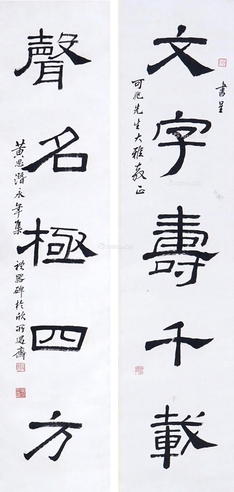 文字壽千載
書呈
可凡先生大雅教正
聲名極四方
黃思潛永年集
禮器碑於欣所遇齋